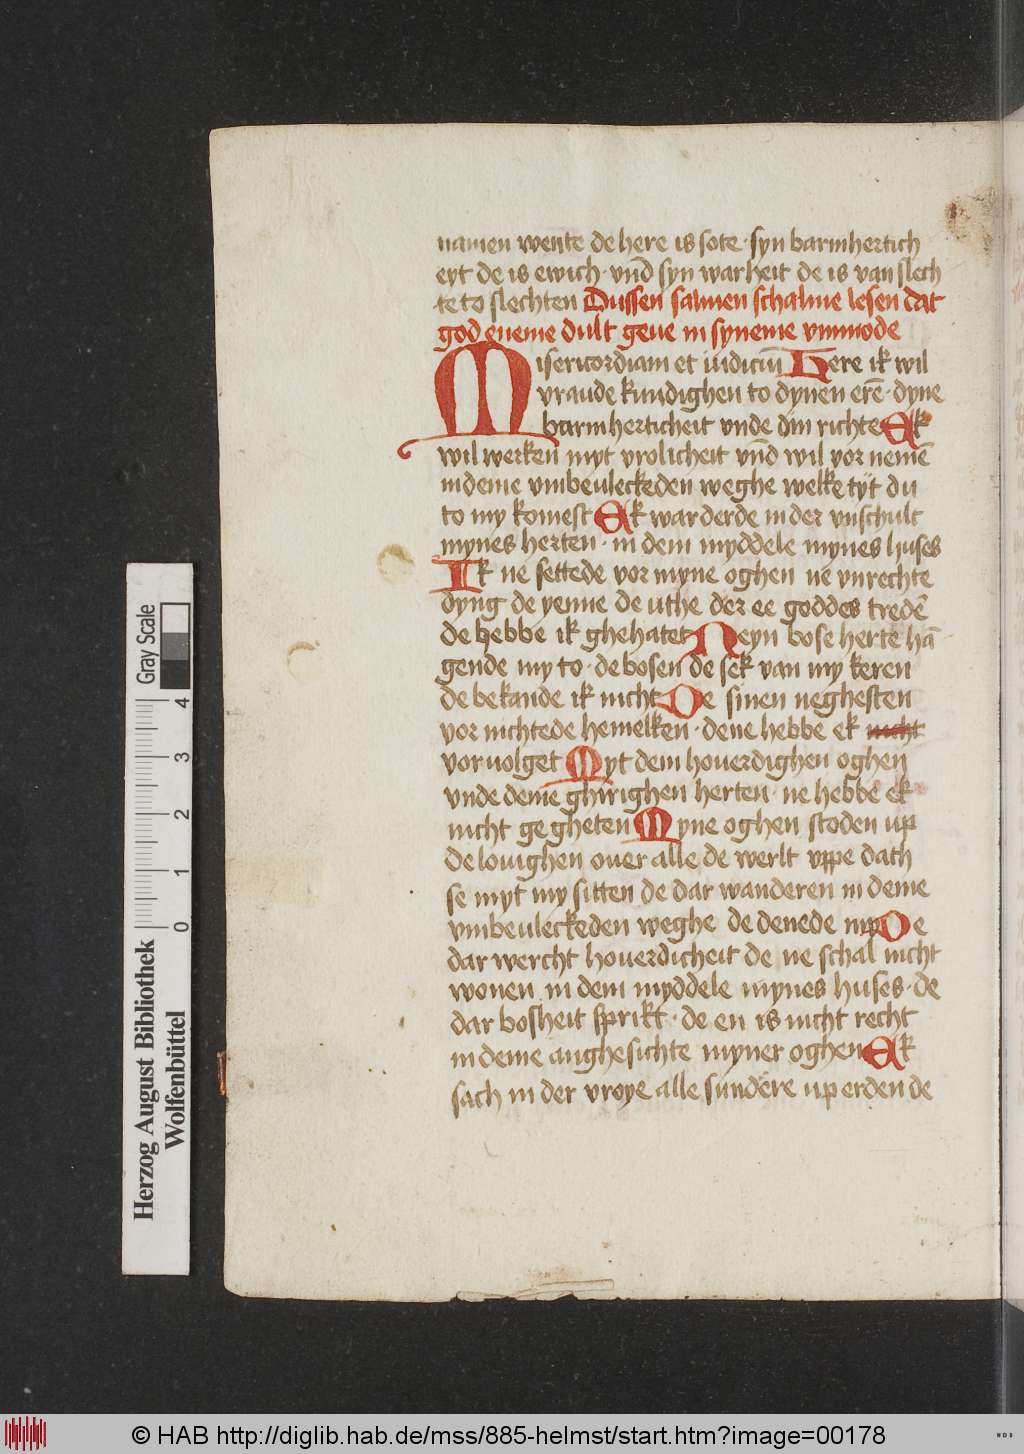 namen wente de here is sote · syn barmhertich
eyt de is ewich · vnd̄ syn warheit de is van slech
te to slechten Dussen salmen schalme lesen dat
god eneme dult geue in syneme vnmode
Misericordiam et iudiciū Here ik wil
vraude kundighen to dynen erē · dyne
barmherticheit vnde din richte Ek
wil werken myt vrolicheit vnd̄ wil vor nemē
in deme vmbeuleckeden weghe welke tyt du
to my komest Ek warderde in der vnschult
mynes herten · in dem myddele mynes huses
Ik ne settede vor myne oghen ne vnrechte
dyng de yenne de vthe der ee goddes tredē
de hebbe ik ghehatet Neyn bose herte hā
gende my to · de bosen de sek van my keren
de bekande ik nicht De sinen neghesten
vor nichtede hemelken · dene hebbe ek nicht
voruolget Myt dem houerdighen oghen
vnde deme ghirighen herten · ne hebbe ek
nicht gegheten Myne oghen stoden up
de louighen ouer alle de werlt vppe dath
se myt my sitten de dar wanderen in deme
vmbeuleckeden weghe de denede my De
dar wercht houerdicheit de ne schal nicht
wonen in dem myddele mynes huses · de
dar bosheit sprikt · de en is nicht recht
in deme anghesichte myner oghen Ek
sach in der vroye alle sundere up erden de
Herzog August Bibliothek
Wolfenbüttel
0 1 2 3 4
Gray Scale
© HAB http://diglib.hab.de/mss/885-helmst/start.htm?image=00178